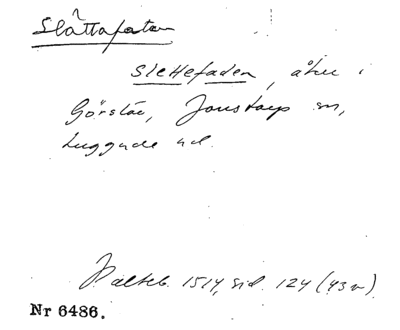 Slåttafaten
Slettefaden, åker i
Görslöv, Jonstorp sn,
Luggude hd.
Pälteb. 1514, sid. 124 (43 n)
Nr 6486.